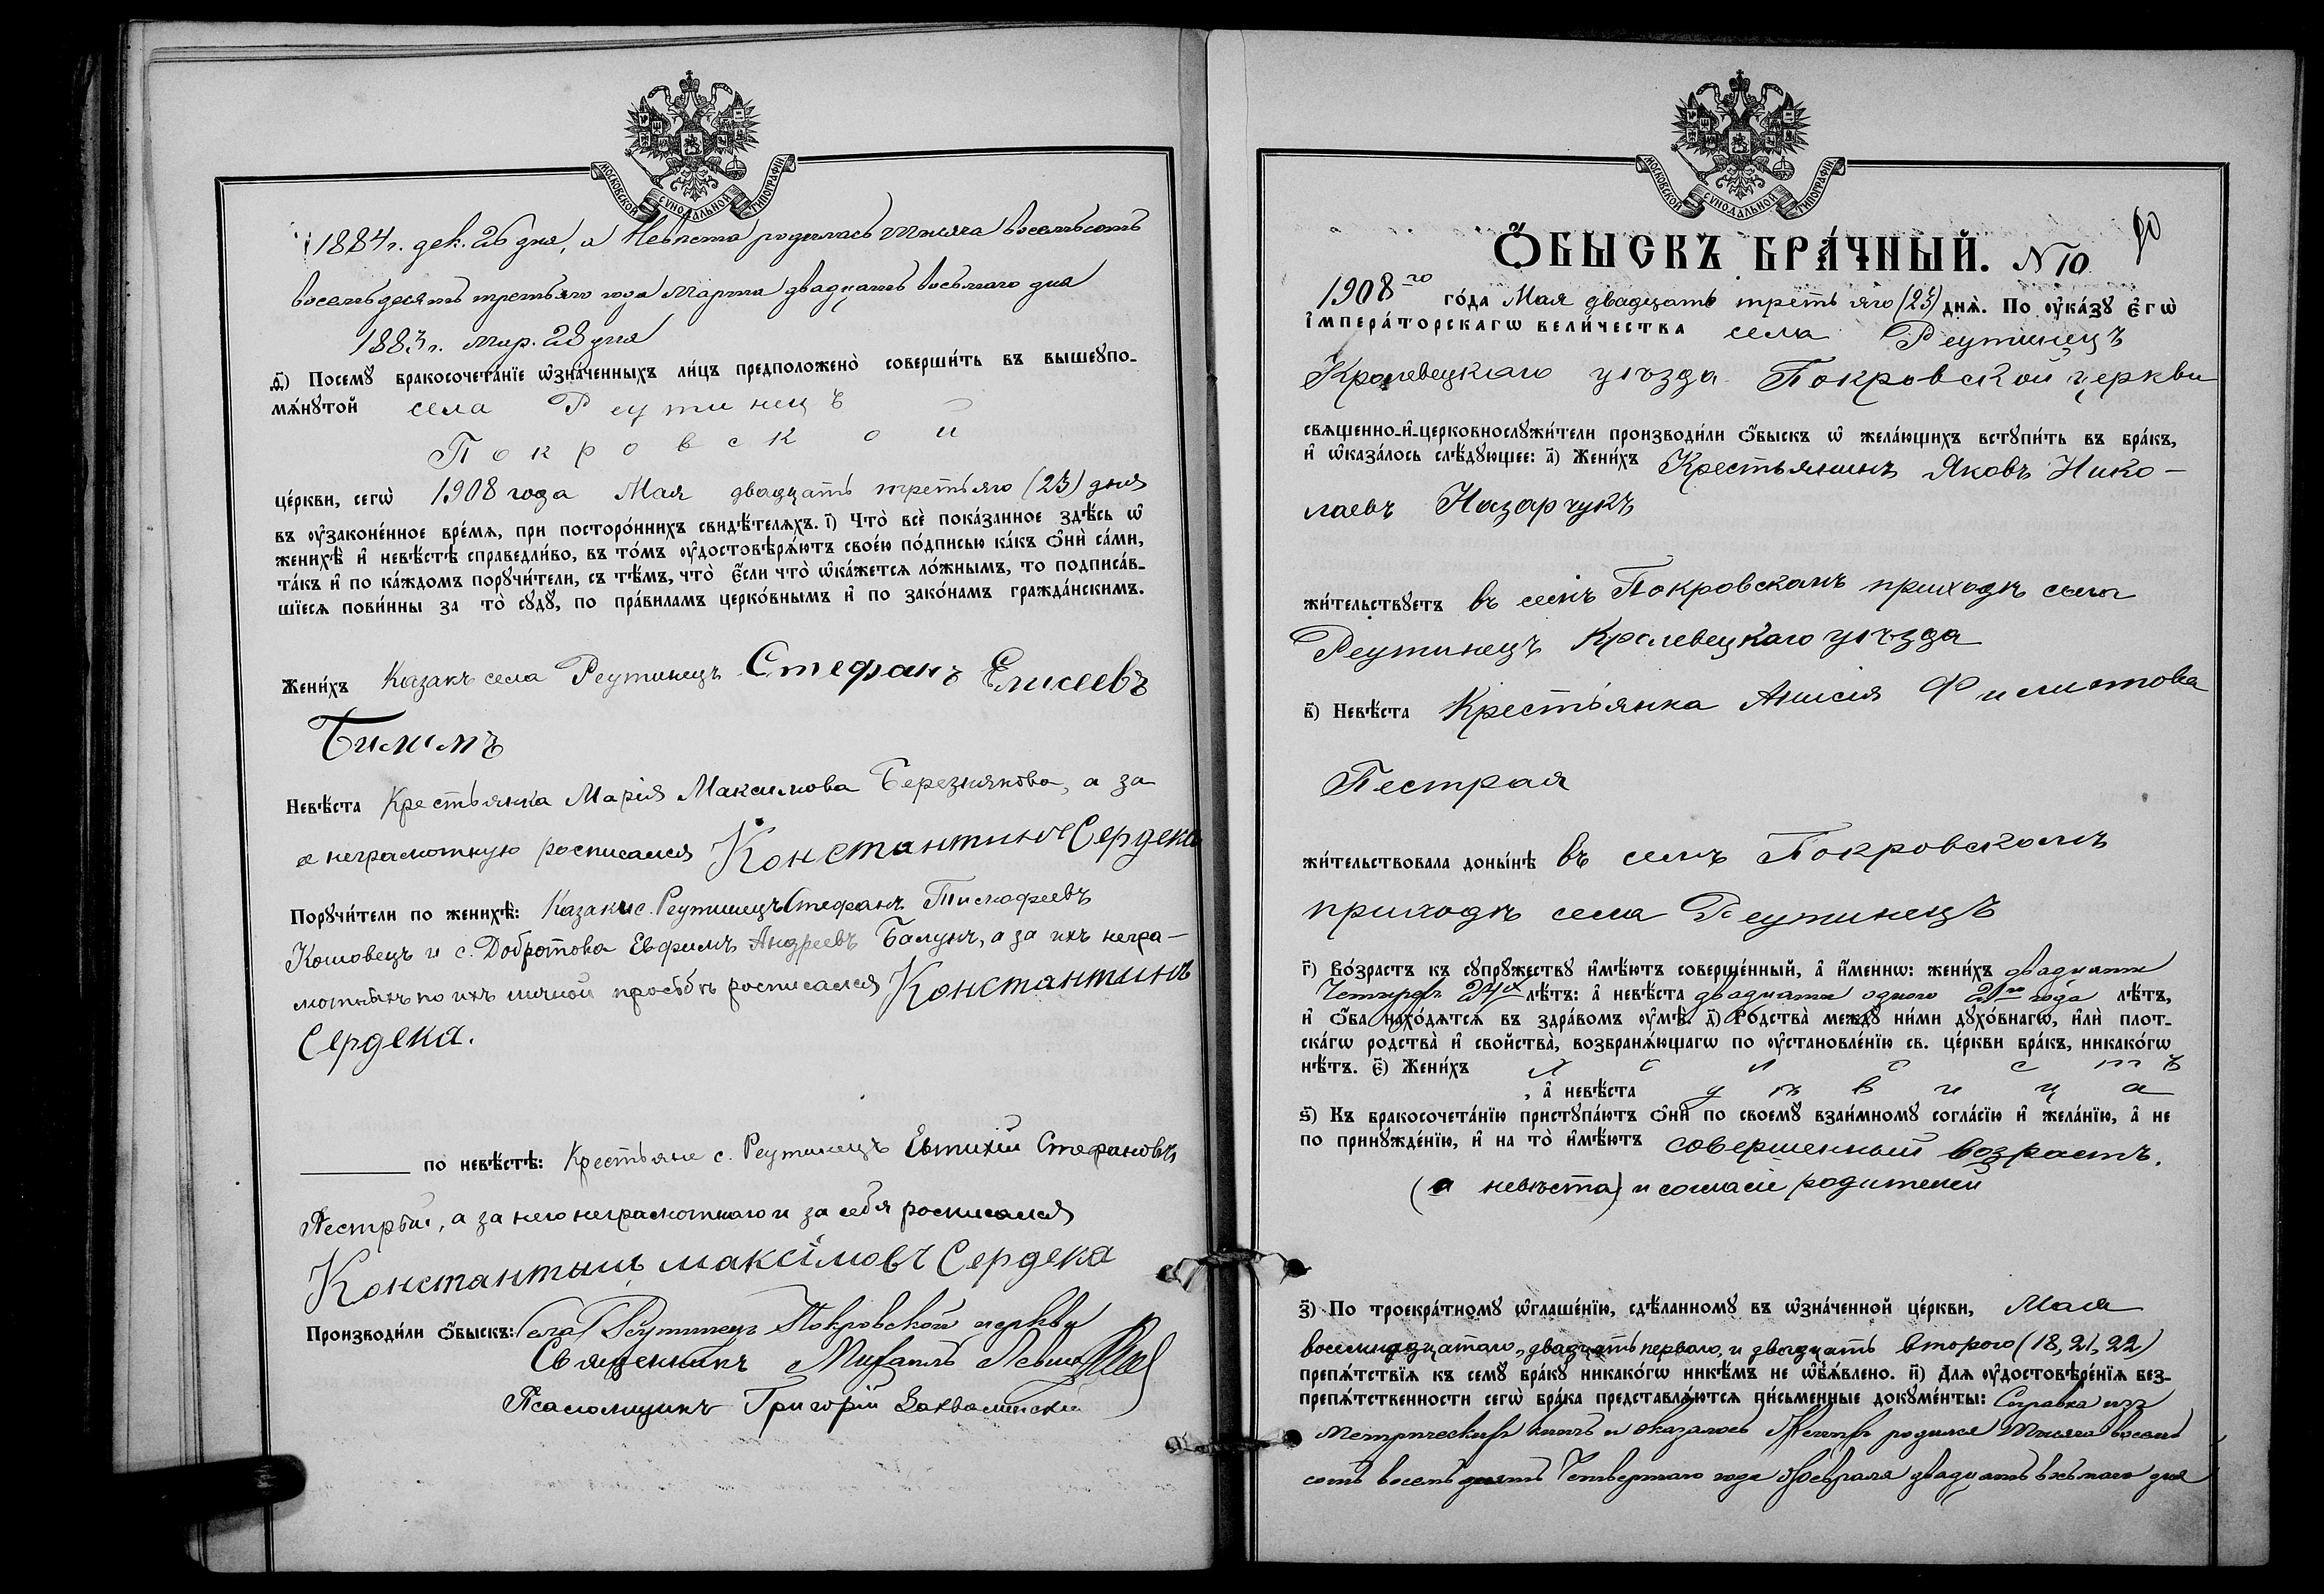 МОСКОВСКОЙ СУНОДАЛЬНОЙ ТИПОГРАФІИ
1884 г. дек. 26 дня, а Невѣста родилась тысяча восемьсотъ
восемьдесятъ третьяго года Марта двадцать восьмаго дня
1883 г. мар. 28 дня
д҃) Посемꙋ бракосочета́нїе ѡ҆зна́ченныхъ ли́цъ предположено̀ соверши́ть въ вышеꙋпо-
мѧ́нꙋтой села Реутинецъ
Покровской
це́ркви, сегѡ̀ 1908 года Мая двадцать третьяго (23) дня
въ ᲂу҆законе́нное вре́мѧ, при посторо́ннихъ свидѣ́телѧхъ. і҃) Что̀ всѐ пока́занное здѣ́сь ѡ҆
женихѣ̀ и҆ невѣ́стѣ справедли́во, въ то́мъ ᲂу҆достовѣрѧ́ютъ свое́ю по́дписью ка́къ ѻ҆нѝ са́ми,
та́къ и҆ по ка́ждомъ порꙋчи́тели, съ тѣ́мъ, что̀ є҆́сли что̀ ѡ҆ка́жетсѧ ло́жнымъ, то подписа́в-
шїесѧ пови́нны за то̀ сꙋдꙋ̀, по пра́виламъ церко́внымъ и҆ по зако́намъ гражда́нскимъ.
Жени́хъ Казакъ села Реутинецъ Стефанъ Елисеевъ
Билимъ
Невѣ́ста Крестьянка Марія Максимова Березнякова, а за
е неграмотную росписался Константинъ Сердека
Порꙋчи́тели по женихѣ̀: Казаки с. Реутинецъ Стефанъ Тимофеевъ
Кошовецъ и с. Добротова Евфимъ Андреевъ Балунъ, а за ихъ негра-
мотныхъ по ихъ личной просьбѣ росписался Константинъ
Сердека.
по невѣ́стѣ: Крестьяне с. Реутинецъ Евтихій Стефановъ
Пестрый, а за него неграмотнаго и за себя росписался
Константынъ максімовъ Сердека
Производи́ли ѻ҆́быскъ: Села Реутинецъ Покровской церкви
Священникъ Михаилъ
Псаломщикъ Григорій
МОСКОВСКОЙ СУНОДАЛЬНОЙ ТИПОГРАФІИ
90
Ѻ҆́БЫСКЪ БРА́ЧНЫЙ. N 10
1908го го́да Мая двадцать третьяго (23) днѧ̀. По ᲂу҆ка́зꙋ Є҆гѡ̀
І҆мпера́торскагѡ вели́чества села Реутинецъ
Кролевецкаго уѣзда Покровской церкви
свѧщенно-и҆-церковнослꙋжи́тели производи́ли ѻ҆́быскъ ѡ҆ жела́ющихъ встꙋпи́ть въ бра́къ,
и҆ ѡ҆каза́лось слѣ́дꙋющее: а҃) Жени́хъ Крестьянинъ Яковъ Нико-
лаевъ Назарчукъ
жи́тельствꙋетъ въ семъ Покровскомъ приходѣ села
Реутинецъ Кролевецкаго уѣзда
в҃) Невѣ́ста Крестьянка Анисія Филиппова
Пестрая
жи́тельствовала доны́нѣ въ семъ Покровскомъ
приходѣ села Реутинецъ
г҃) Во́зрастъ къ сꙋпрꙋ́жествꙋ и҆мѣ́ютъ соверше́нный, а҆ и҆́меннѡ: жени́хъ двадцати
четырехъ 24х лѣ́тъ: а҆ невѣ́ста двадцати одного 21го года лѣ́тъ,
и҆ ѻ҆́ба нахо́дѧтсѧ въ здра́вомъ ᲂу҆мѣ̀. д҃) Родства̀ междꙋ̀ ни́ми дꙋхо́внагѡ, и҆лѝ плот-
ска́гѡ родства̀ и҆ сво́йства̀, возбранѧ́ющагѡ по ᲂу҆становле́нїю св. це́ркви бра́къ, никако́гѡ
нѣ́тъ. є҃) Жени́хъ холостъ
, а҆ невѣ́ста дѣвица
ѕ҃) Къ бракосочета́нїю пристꙋпа́ютъ ѻ҆нѝ по своемꙋ̀ взаи́мномꙋ согла́сїю и҆ жела́нїю, а҆ не
по принꙋжде́нїю, и҆ на то̀ и҆мѣ́ютъ совершенный возрастъ.
(а невѣста) и согласіе родителей
з҃) По троекра́тномꙋ ѡ҆глаше́нїю, сдѣ́ланномꙋ въ ѡ҆зна́ченной це́ркви, Мая
восемнадцатаго, двадцать перваго, и двадцать второго (18, 21, 22)
препѧ́тствїѧ къ семꙋ̀ бра́кꙋ никако́гѡ никѣ́мъ не ѡ҆б̾ѧ́влено. и҃) Для ᲂу҆достовѣре́нїѧ без-
препѧ́тственности сегѡ̀ бра́ка представлѧ́ютсѧ пи́сьменные докꙋме́нты: Справка изъ
метрическихъ книгъ и оказалось Женихъ родился тысяча восемь
сотъ восемьдесятъ четвертаго года Февраля двадцать восьмаго дня